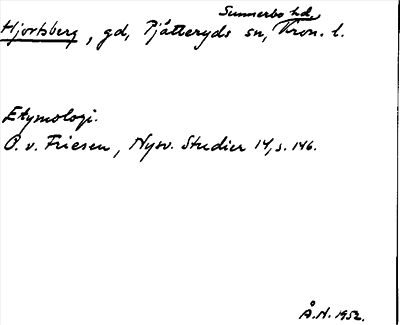 Sunnerbo hd,
Hjortsberg, gd, Pjätteryds sn, Kron. l.
Etymologi.
O. v. Friesen, Nysv. Studier 14, s. 146.
Å.N. 1952.